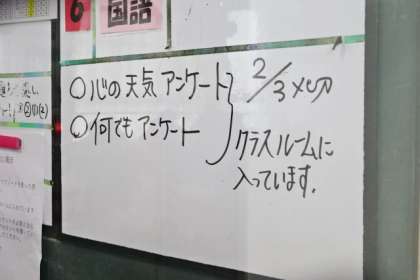 6
国語
○心の天気アンケート
○何でもアンケート
2/3〆切
クラスルームに
入っています。